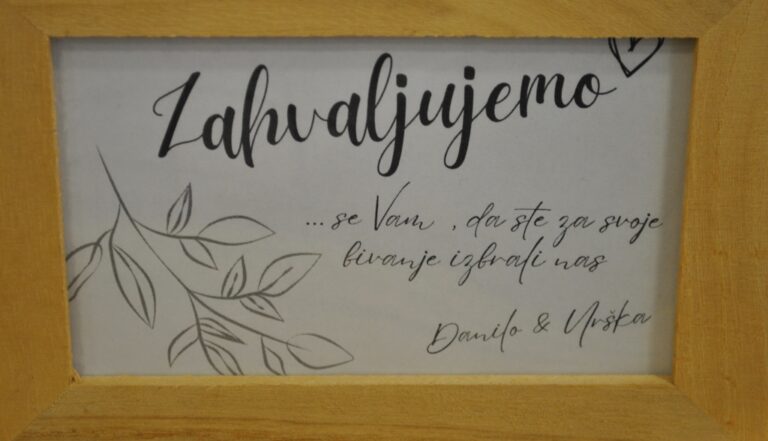 Zahvaljujemo
... se Vam , da ste za svoje
bivanje izbrali nas
Danilo & Urška